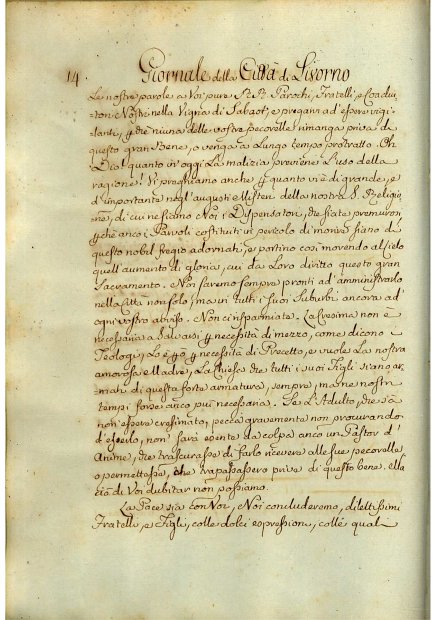 14 Giornale della Città di Livorno
Le nostre parole a Voi pure RR. Parochi, Fratelli, e Coadiu-
tori Nostri nella Vigna di Sabaot, e preganvi ad essere vigi-
lanti, che niuna delle vostre pecorelle rimanga priva di
questo gran Bene, o venga a Lungo tempo protratto. Oh
Dio! quanto in oggi La malizia previene L'uso della
ragione! Vi preghiamo anche quanto vi è di grande, e
d'importante negl'augusti Misteri della nostra S. Religio-
ne, di cui ne siamo Noi i Dispensatori, che siate premurosi,
che anco i Parvoli costituiti in pericolo di morire siano di
questo nobil fregio adornati, e portino così morendo al Cielo
quell'aumento di gloria, cui dà Loro diritto questo gran
Sacramento. Noi saremo sempre pronti ad amministrarlo
nella Città non solo, ma in tutti i suoi Suburbi ancora ad
ogni vostro abviso. Non ci risparmiate. La Cresima non è
necessaria a Salvarsi di necessità di mezzo, come dicono i
Teologi, Lo è di necessità di Precetto, e vuole La nostra
amorosa Madre, La Chiesa che tutti i suoi Figli siano ar-
mati di questa forte armatura, sempre, ma ne nostri
tempi forse anco più necessaria. Se L'Adulto, che sà
non essere cresimato, pecca gravemente non procurando
d'esserlo, non sarà esente da colpa anco un Pastor d'
Anime, che trascurasse di farlo ricevere alle sue pecorelle
o permettesse, che trapassassero prive di questo bene. ella
di Voi dubitar non possiamo.
La Pace sia con Voi, Noi concluderemo, dilettissimi
Fratelli, e Figli, colle dolci espressioni, colle quali